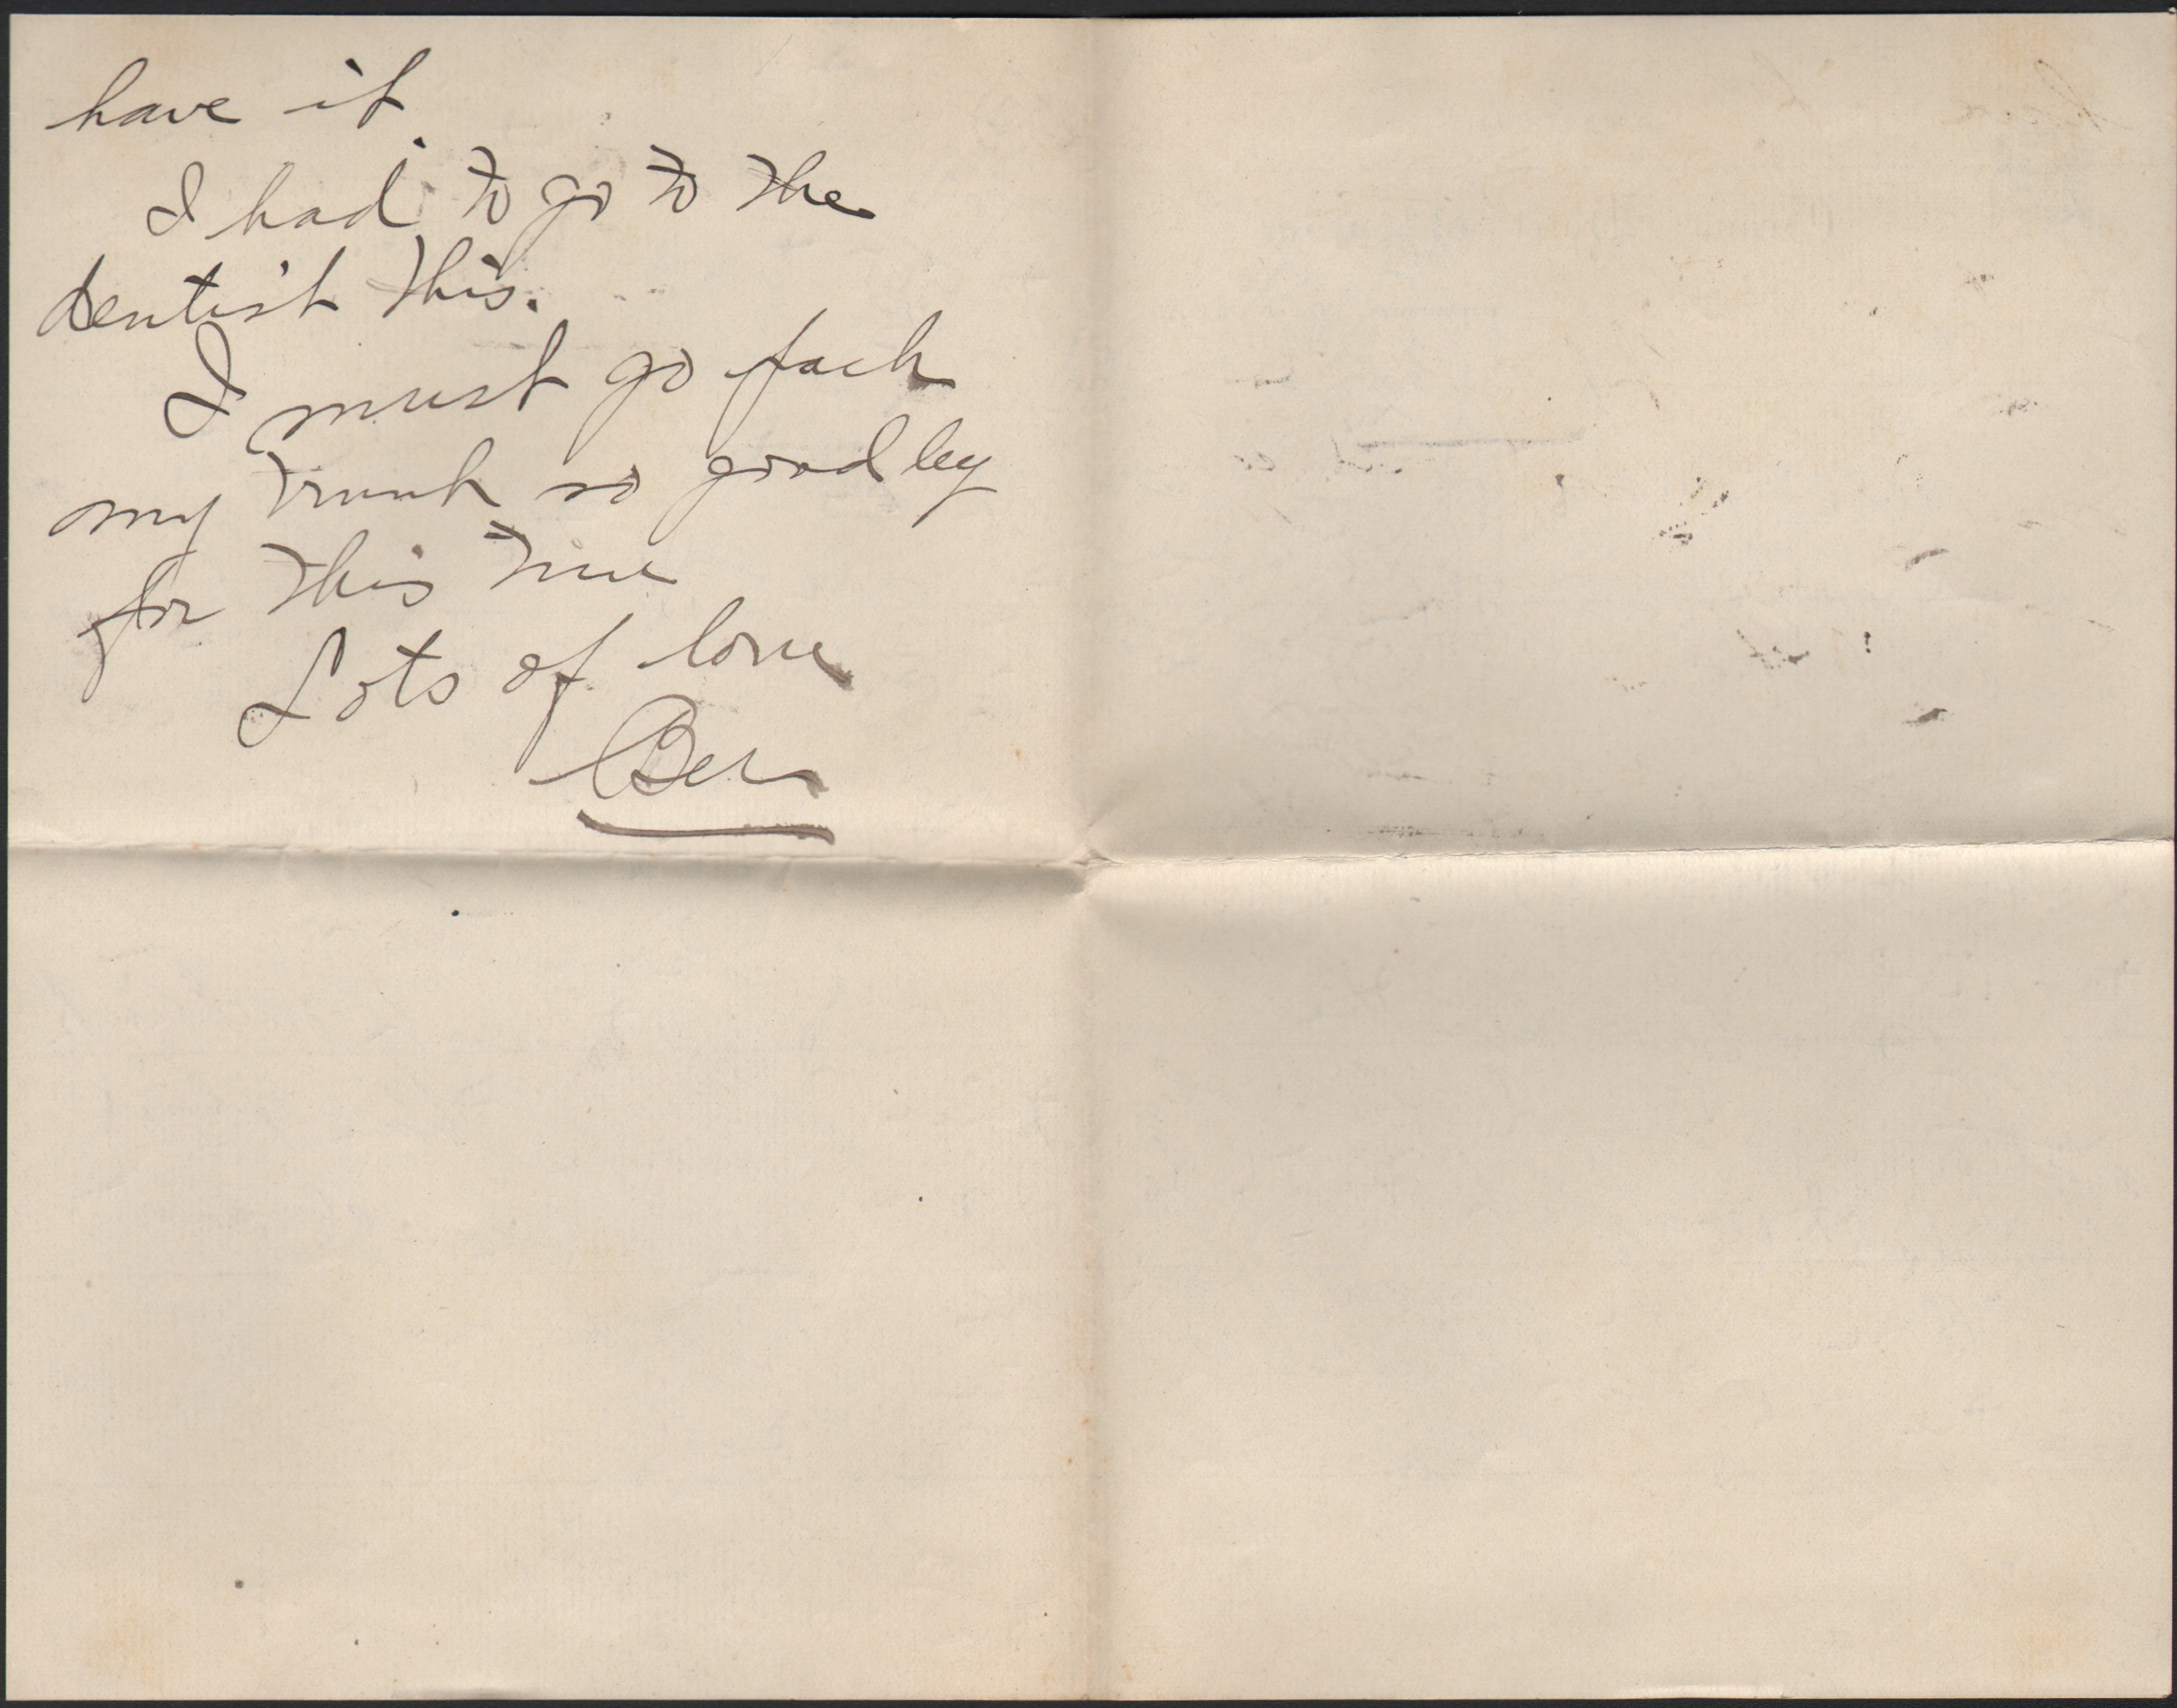 have it.
I had to go to the
dentist this.
I must go pack
my trunk so good by
for this time
Lots of love
Ben